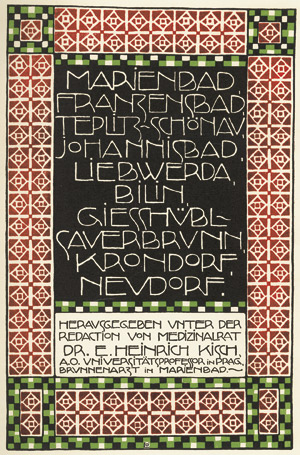 MARIENBAD,
FRANZENSBAD,
TEPLITZ-SCHÖNAV,
JOHANNISBAD,
LIEBWERDA,
BILIN,
GIESSHÜBL-
SAVERBRVNN,
KRONDORF,
NEVDORF.
HERAVSGEGEBEN VNTER DER
REDACTION VON MEDIZINALRAT
DR. E. HEINRICH KISCH,
A.O. VNIVERSITÄTSPROFESSOR IN PRAG,
BRVNNENARZT IN MARIENBAD.~